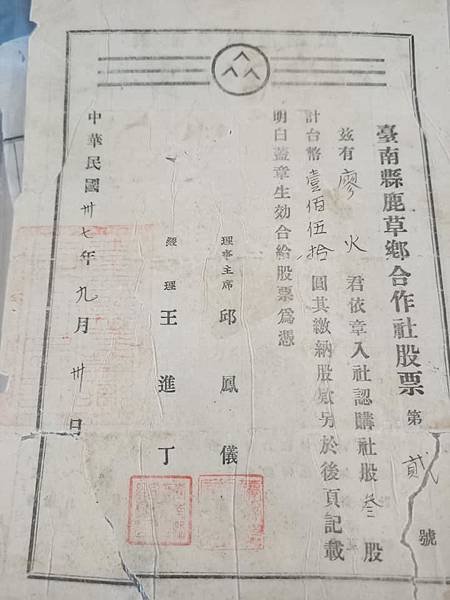 臺南縣鹿草鄉合作社股票 第貳號
茲有廖火君依章入社認購社股叁股
計台幣壹佰伍拾圓其繳納股款另於後頁記載
明白蓋章生効合給股票爲憑
理事主席 邱鳳儀
經理 王進丁
中華民國卅七年九月卅日